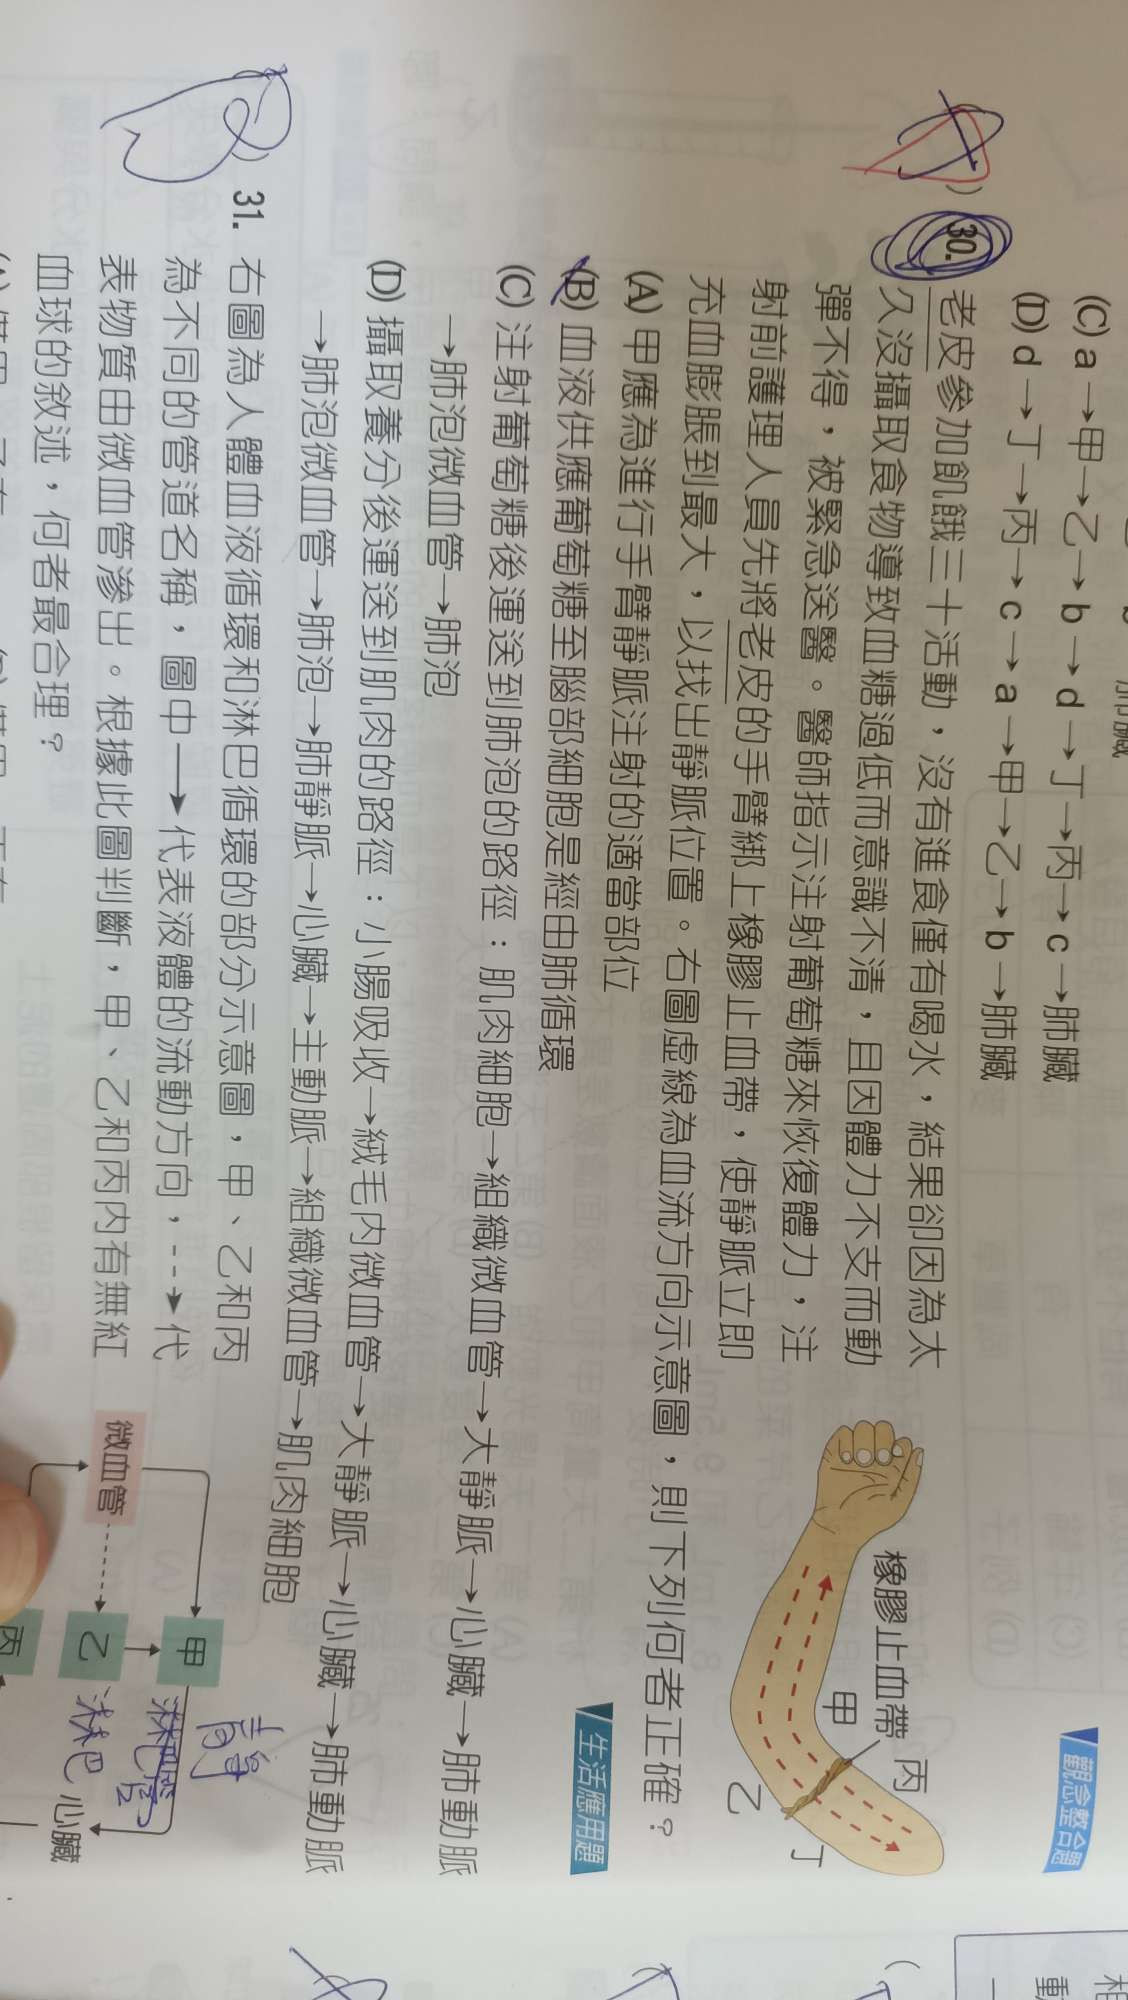 (C) a→甲→乙→b→d→丁→丙→c→肺臟
(D) d→丁→丙→c→a→甲→乙→b→肺臟
觀念整合題
30. 老皮參加飢餓三十活動，沒有進食僅有喝水，結果卻因為太
久沒攝取食物導致血糖過低而意識不清，且因體力不支而動
彈不得，被緊急送醫。醫師指示注射葡萄糖來恢復體力，注
射前護理人員先將老皮的手臂綁上橡膠止血帶，使靜脈立即
充血膨脹到最大，以找出靜脈位置。右圖虛線為血流方向示意圖，則下列何者正確？
橡膠止血帶
甲
丙
乙
丁
(A) 甲應為進行手臂靜脈注射的適當部位
生活應用題
(B) 血液供應葡萄糖至腦部細胞是經由肺循環
(C) 注射葡萄糖後運送到肺泡的路徑：肌肉細胞→組織微血管→大靜脈→心臟→肺動脈
→肺泡微血管→肺泡
(D) 攝取養分後運送到肌肉的路徑：小腸吸收→絨毛內微血管→大靜脈→心臟→肺動脈
→肺泡微血管→肺泡→肺靜脈→心臟→主動脈→組織微血管→肌肉細胞
31. 右圖為人體血液循環和淋巴循環的部分示意圖，甲、乙和丙
為不同的管道名稱，圖中→代表液體的流動方向，--→代
表物質由微血管滲出。根據此圖判斷，甲、乙和丙內有無紅
血球的敘述，何者最合理？
微血管
甲
乙
淋巴
心臟
丙